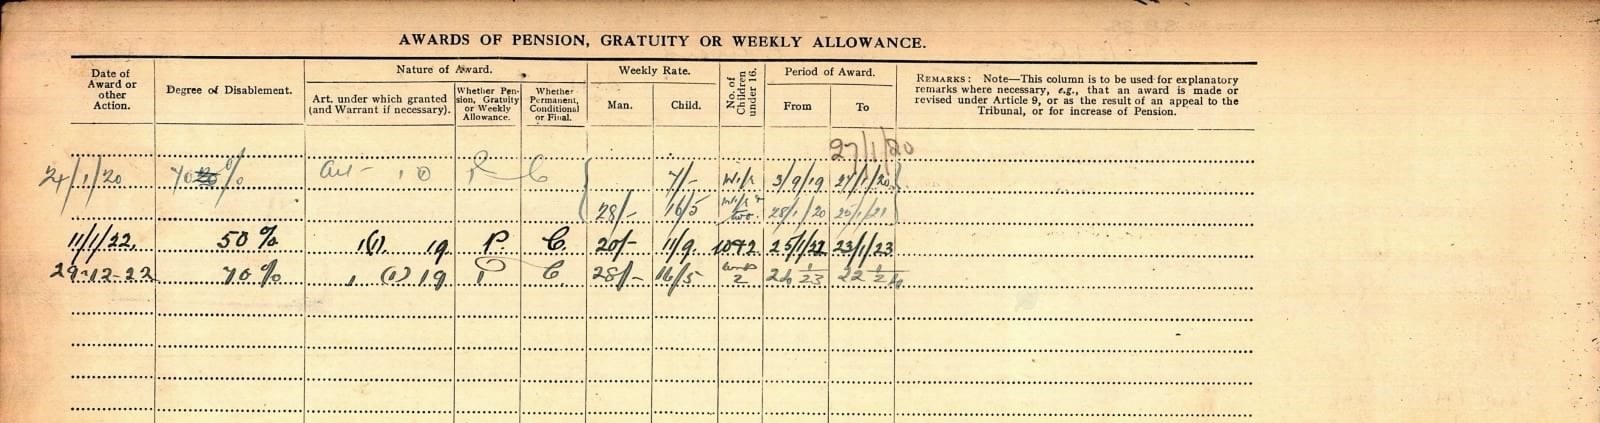 AWARDS OF PENSION, GRATUITY OR WEEKLY ALLOWANCE.
Date of Award or other Action.
Degree of Disablement.
Nature of Award.
Art. under which granted (and Warrant if necessary).
Whether Pension, Gratuity or Weekly Allowance.
Whether Permanent, Conditional or Final.
Weekly Rate.
Man.
Child.
No. of Children under 16.
Period of Award.
From
To
REMARKS: Note—This column is to be used for explanatory
remarks where necessary, e.g., that an award is made or
revised under Article 9, or as the result of an appeal to the
Tribunal, or for increase of Pension.
27/1/20
/1/20 70 % Art 10 P C 7/- 3/9/19 27/1/20
28/- 16/5 28/1/20 25/1/21
11/1/22. 50 % 1(1). 19 P. C. 20/- 11/9. 25/1/22 23/1/23
29-12-22 70 % 1 (1) 19 P C. 28/- 16/5 2 24 1/23 22 1/24